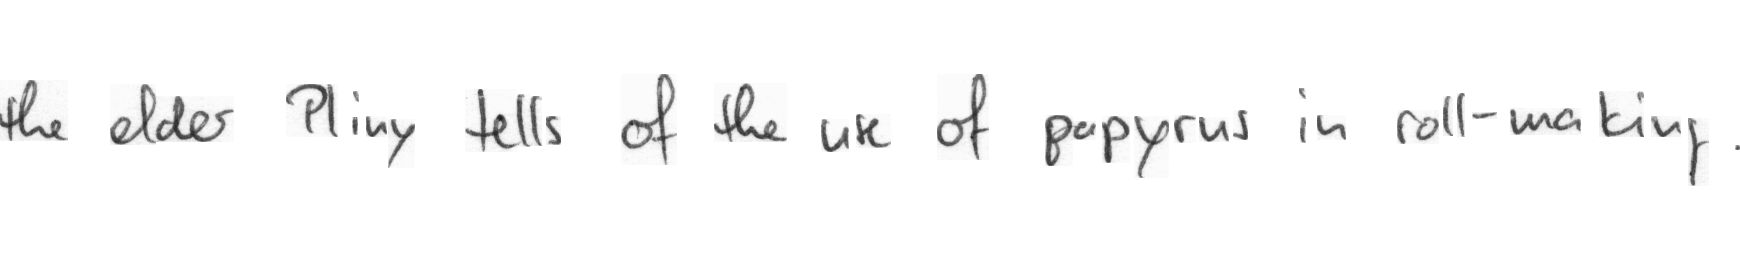 the elder Pliny tells of the use of papyrus in roll-making.